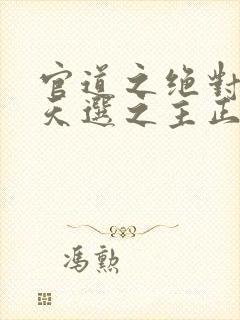 官道之绝對
天選之主正
馮勲